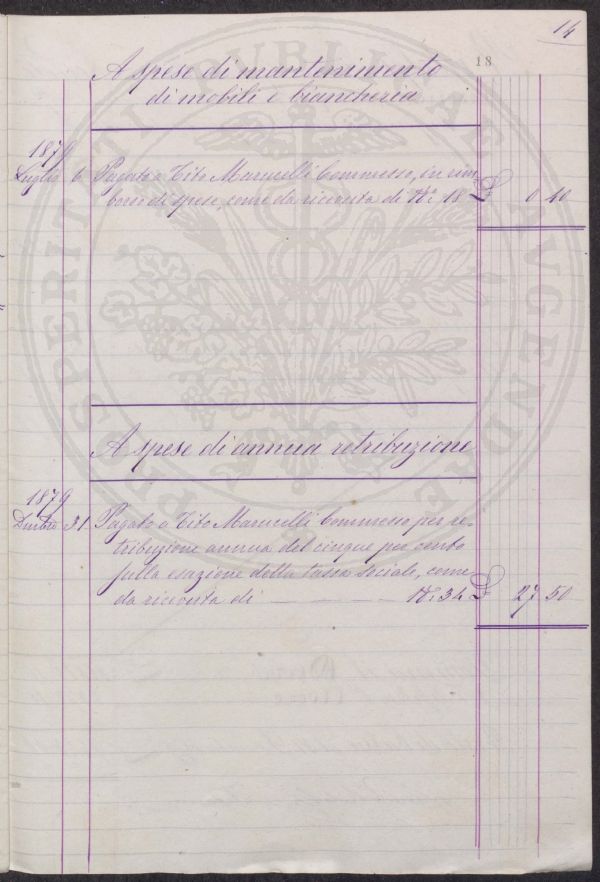 14
18
A spese di mantenimento
di mobili e biancheria
1879
Luglio 6 Pagato a Tito Marucelli Commesso, in rim
borso di spese, come da ricevuta di N.º 18 £ 0 40
A spese di annua retribuzione
1879
Dicbre 31 Pagato a Tito Marucelli Commesso per re-
tribuzione annua del cinque per cento
sulla esazione della tassa sociale, come
da ricevuta di N.º 34 £ 27 50
PROSPERITATI PUBLICAE AUGENDAE